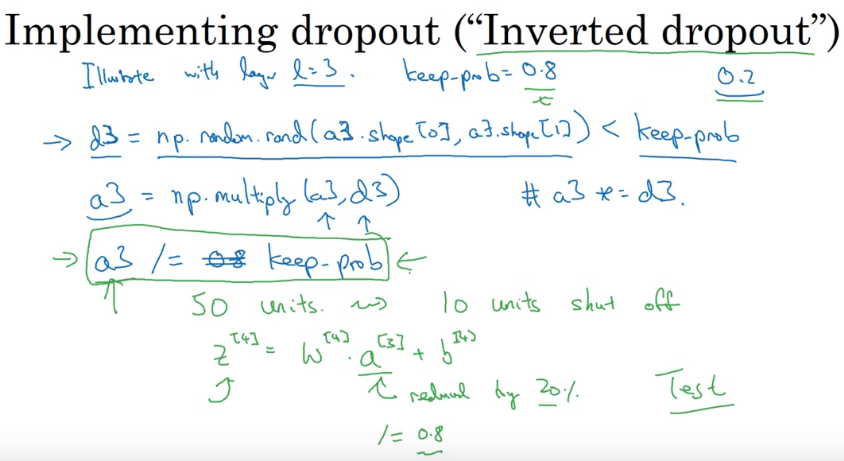 Implementing dropout (“Inverted dropout”)
Illustrate with layer l=3. keep-prob = 0.8 0.2
→ d3 = np.random.rand(a3.shape[0], a3.shape[1]) < keep-prob
a3 = np.multiply(a3, d3) # a3 *= d3.
→ a3 /= 0.8 keep-prob ←
50 units. ⇝ 10 units shut off
z[4] = W[4] · a[3] + b[4]
reduced by 20%. Test
/= 0.8